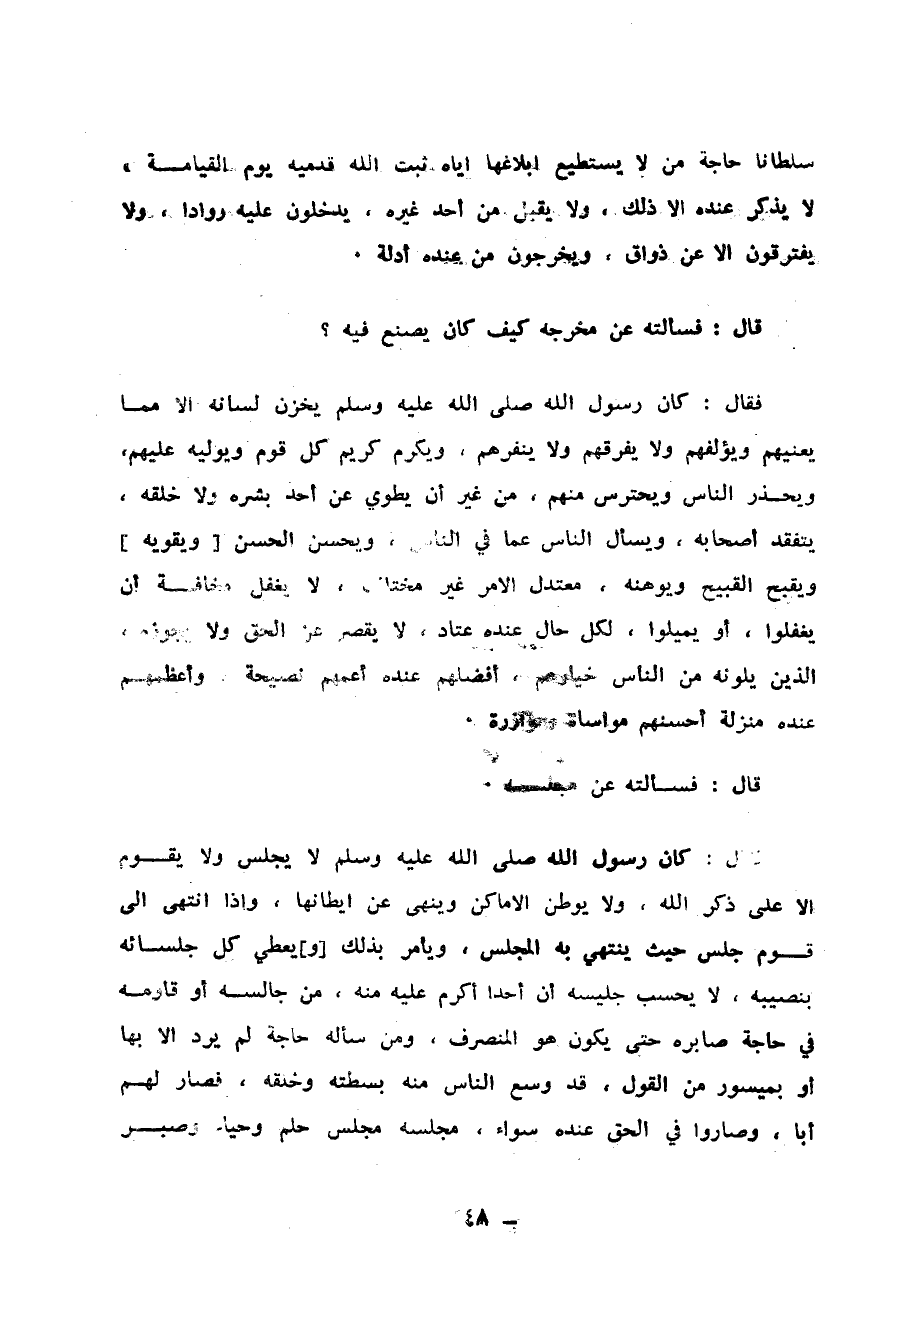 سلطانا حاجة من لا يستطيع ابلاغها اياه ثبت الله قدميه يوم القيامة ،
لا يذكر عنده الا ذلك ، ولا يقبل من أحد غيره ، يدخلون عليه روادا ، ولا
يفترقون الا عن ذواق ، ويخرجون من عنده أدلة ٠
قال : فسالته عن مخرجه كيف كان يصنع فيه ؟
فقال : كان رسول الله صلى الله عليه وسلم يخزن لسانه الا مما
يعنيهم ويؤلفهم ولا يفرقهم ولا ينفرهم ، ويكرم كريم كل قوم ويوليه عليهم،
ويحذر الناس ويحترس منهم ، من غير أن يطوي عن أحد بشره ولا خلقه ،
يتفقد أصحابه ، ويسأل الناس عما في الناس ، ويحسن الحسن [ ويقويه ]
ويقبح القبيح ويوهنه ، معتدل الامر غير مختلف ، لا يغفل مخافة أن
يغفلوا ، أو يميلوا ، لكل حال عنده عتاد ، لا يقصر عن الحق ولا يجوزه ،
الذين يلونه من الناس خيارهم ، أفضلهم عنده أعمهم نصيحة . وأعظمهم
عنده منزلة أحسنهم مواساة ومؤازرة ٠
قال : فسالته عن مجلسه ٠
قال : كان رسول الله صلى الله عليه وسلم لا يجلس ولا يقوم
الا على ذكر الله ، ولا يوطن الاماكن وينهى عن ايطانها ، واذا انتهى الى
قوم جلس حيث ينتهي به المجلس ، ويأمر بذلك [و]يعطي كل جلسائه
بنصيبه ، لا يحسب جليسه أن أحدا أكرم عليه منه ، من جالسه أو قاومه
في حاجة صابره حتى يكون هو المنصرف ، ومن سأله حاجة لم يرد الا بها
أو بميسور من القول ، قد وسع الناس منه بسطته وخلقه ، فصار لهم
أبا ، وصاروا في الحق عنده سواء ، مجلسه مجلس حلم وحياء وصبر
٤٨ –